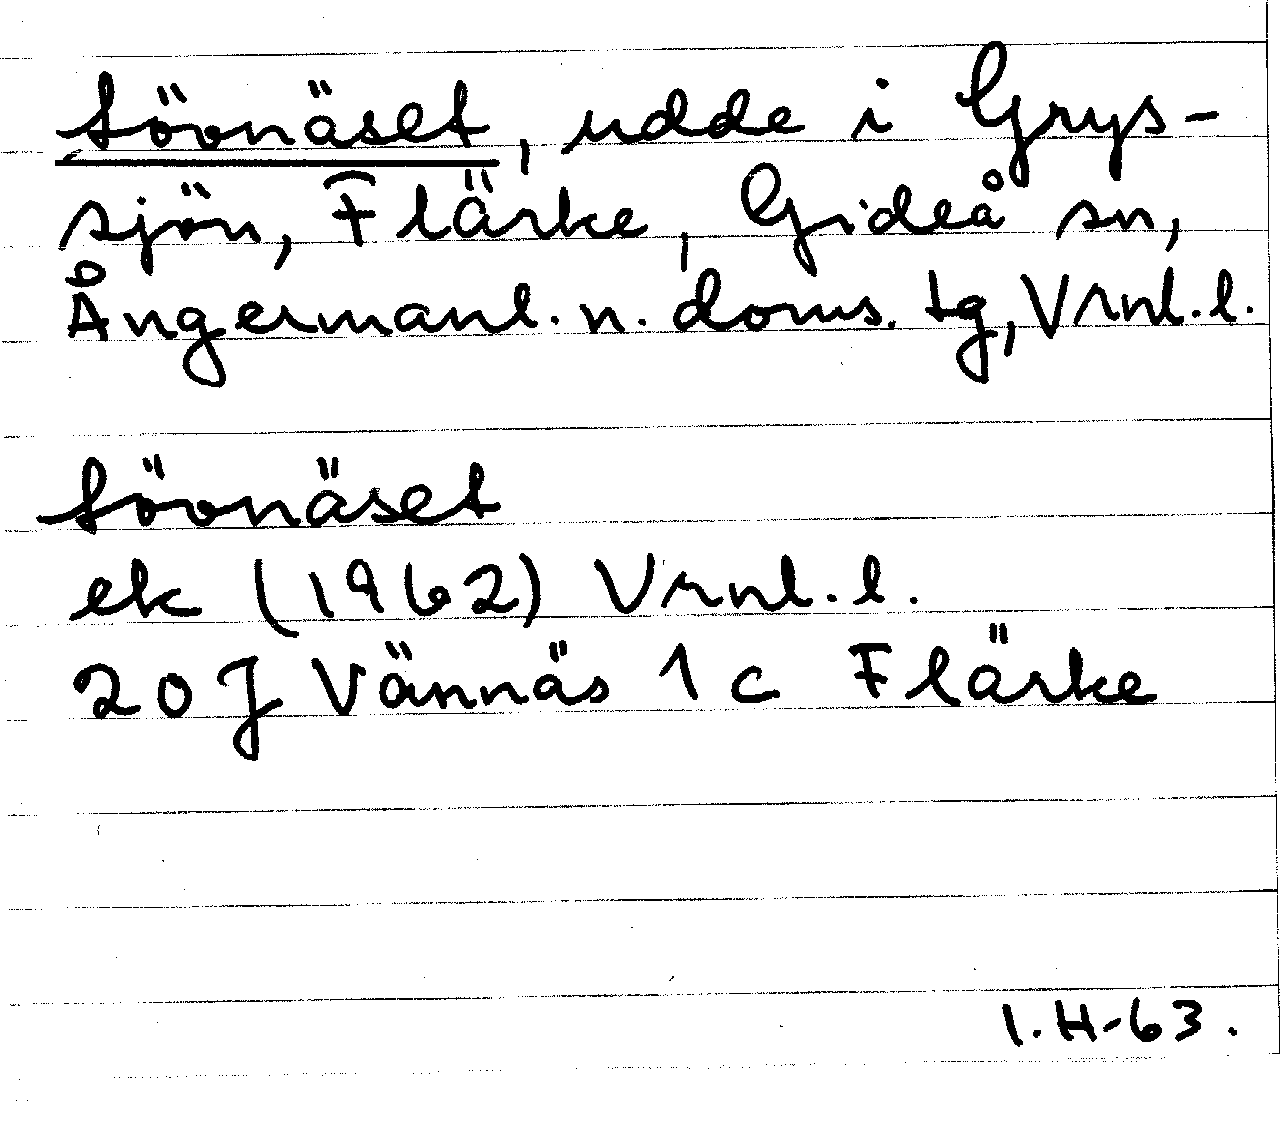 Lövnäset, udde i Grys-
sjön, Flärke, Gideå sn,
Ångermanl. n. doms. tg, Vrnl. l.
Lövnäset
ek (1962) Vrnl. l.
20 J Vännäs 1 c Flärke
I. H-63.